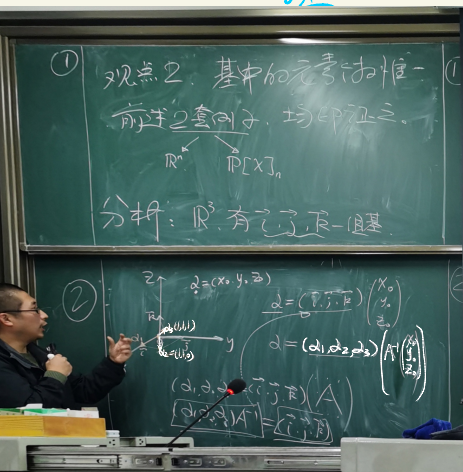 ①
观点2. 基中的元素行为惟一
前述2套例子, 均可印证之。
ℝⁿ ℙ[X]ₙ
分析: ℝ³ 有 i⃗, j⃗, k⃗ 一组基
②
Z α=(x₀, y₀, z₀)
k⃗ α₃(1,1,1)
Y
α₁ α₂=(1,1,0)
α = (i⃗, j⃗, k⃗) (x₀ y₀ z₀)
α = (α₁, α₂, α₃) (A⁻¹(x₀ y₀ z₀))
(α₁, α₂, α₃)=(i⃗, j⃗, k⃗)(A)
(α₁, α₂, α₃)A⁻¹ = (i⃗, j⃗, k⃗)